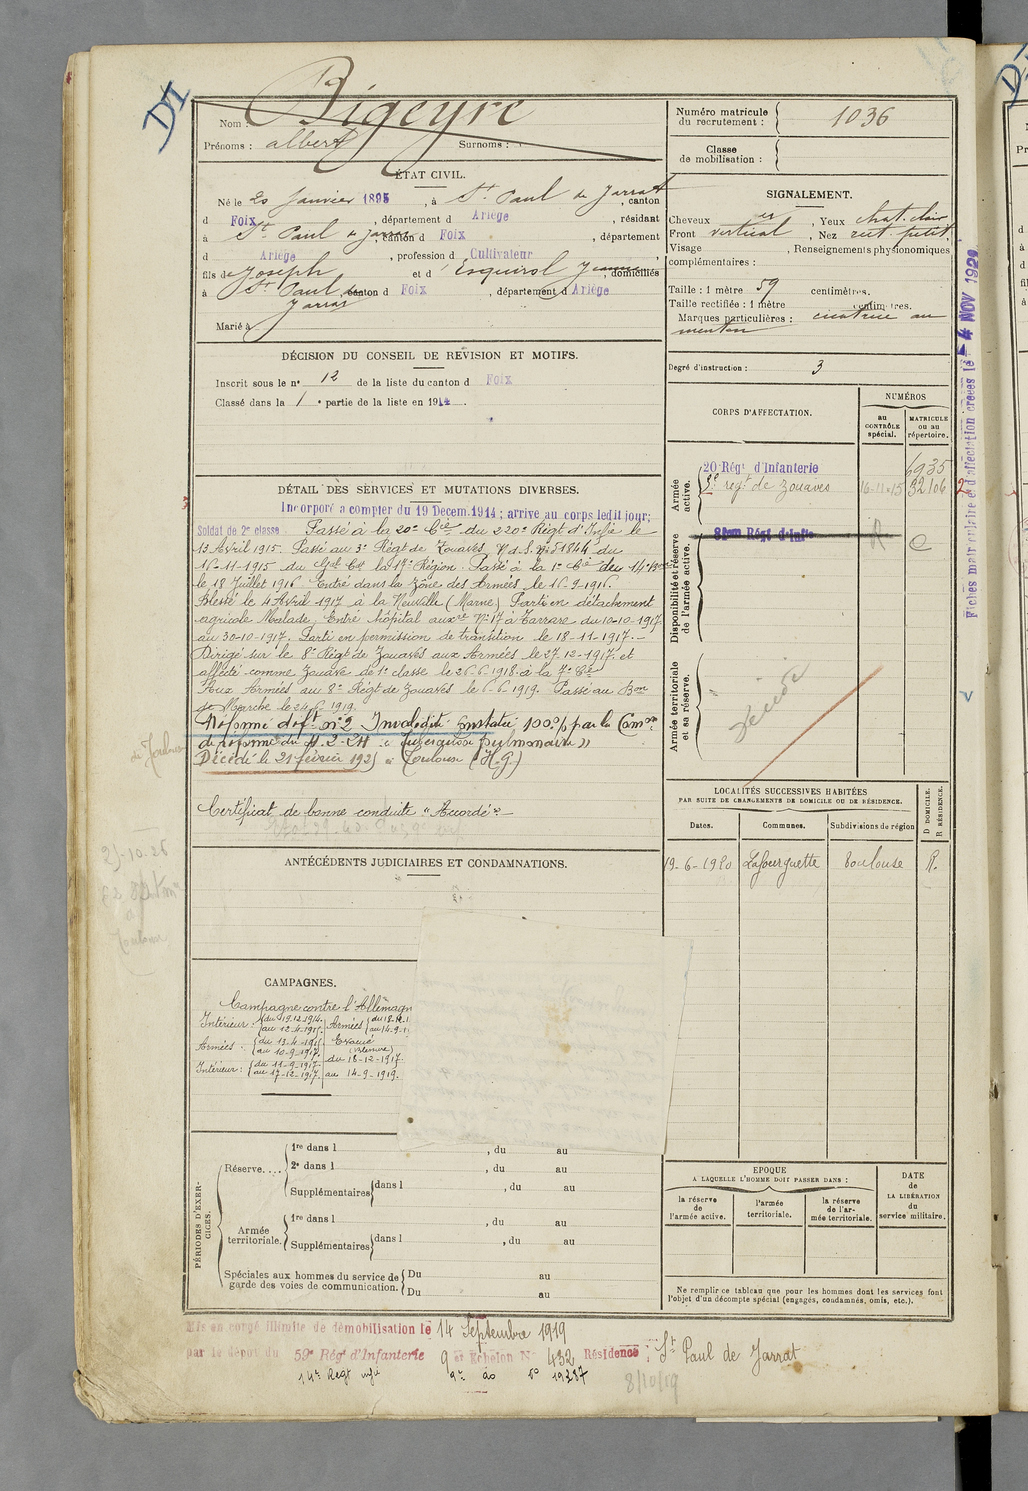 DI
Nom : Bigeyre
Prénoms : albert Surnoms :
Numéro matricule du recrutement : 1036
Classe de mobilisation :
ÉTAT CIVIL.
Né le 20 Janvier 1895, à St Paul de Jarrat, canton
d Foix, département d Ariège, résidant
à St Paul de Jarrat, canton d Foix, département
d Ariège, profession d Cultivateur
fils de Joseph et d Esquirol Jeanne, domiciliés
à St Paul de Jarrat canton d Foix, département d Ariège
Marié à
SIGNALEMENT.
Cheveux, Yeux chat. clair
Front vertical, Nez rect. petit
Visage, Renseignements physionomiques
complémentaires :
Taille : 1 mètre 59 centimètres.
Taille rectifiée : 1 mètre centimètres.
Marques particulières : cicatrice au
menton
Degré d'instruction : 3
DÉCISION DU CONSEIL DE RÉVISION ET MOTIFS.
Inscrit sous le n° 12 de la liste du canton d Foix
Classé dans la 1 e partie de la liste en 1914.
CORPS D'AFFECTATION.
NUMÉROS
au CONTRÔLE spécial.
MATRICULE ou au RÉPERTOIRE.
Armée active.
20 Régt d'Infanterie 6935
3e regt de Zouaves 16-11-15 32106
Disponibilité et réserve de l'armée active.
Régt d'Infie R C
Armée territoriale et sa réserve.
Décédé
DÉTAIL DES SERVICES ET MUTATIONS DIVERSES.
Incorporé à compter du 19 Décem. 1914 ; arrivé au corps ledit jour ;
Soldat de 2e classe Passé à la 20e Cie du 220e Régt d'Infie le
13 Avril 1915. Passé au 3e Régt de Zouaves N.d.S. n° 51844 du
16-11-1915 du Gal Ct la 17e Région. Passé à la 1e Cie du 14e Bon
le 18 Juillet 1916. Entré dans la zône des Armées le 16-9-1916.
Blessé le 4 Avril 1917 à la Neuville (Marne) Parti en détachement
agricole Malade, Entré hôpital auxre N° 17 à Tarrare du 10-10-1917
au 30-10-1917. Parti en permission de transition le 18-11-1917.
Dirigé sur le 8e Régt de Zouaves aux Armées le 27-12-1917. et
affecté comme Zouave de 1e classe le 26-6-1918 à la 7e Cie
Aux Armées au 8e Régt de Zouaves le 6-6-1919. Passé au Bon
de Marche le 24-6-1919.
Réformé déft n° 2 Invalidité constatée 100% par la Comon
de réforme du 4-2-24 « Tuberculose pulmonaire »
Décédé le 21 février 1925 à Toulouse (H.G.)
Certificat de bonne conduite "Accordé"
LOCALITÉS SUCCESSIVES HABITÉES
PAR SUITE DE CHANGEMENTS DE DOMICILE OU DE RÉSIDENCE.
D DOMICILE.
R RÉSIDENCE.
Dates. Communes. Subdivisions de région
19-6-1920 Lafourguette Toulouse R.
ANTÉCÉDENTS JUDICIAIRES ET CONDAMNATIONS.
CAMPAGNES.
Campagne contre l'Allemagn
Intérieur : du 19-12-1914. au 12-4-1915.
Armées
Armées : du 13-4-1915 au 10-9-1917.
Evacué (blessure)
Intérieur : du 11-9-1917. au 17-12-1917.
du 18-12-1917.
au 14-9-1919.
PÉRIODES D'EXERCICES.
Réserve.... 1re dans l, du au
2e dans l, du au
Supplémentaires dans l, du au
Armée territoriale. 1re dans l, du au
Supplémentaires dans l, du au
Spéciales aux hommes du service de garde des voies de communication. Du au
Du au
EPOQUE
A LAQUELLE L'HOMME DOIT PASSER DANS :
la réserve de l'armée active.
l'armée territoriale.
la réserve de l'armée territoriale.
DATE de LA LIBÉRATION du service militaire.
Ne remplir ce tableau que pour les hommes dont les services font
l'objet d'un décompte spécial (engagés, condamnés, omis, etc.).
Fiches matriculaire et d'affectation créées le 4 NOV 192
Mis en congé illimité de démobilisation le 14 Septembre 1919
par le dépôt du 59e Rég d'Infanterie 9 er Echelon N° 432 Résidence : St Paul de Jarrat
8/10/19